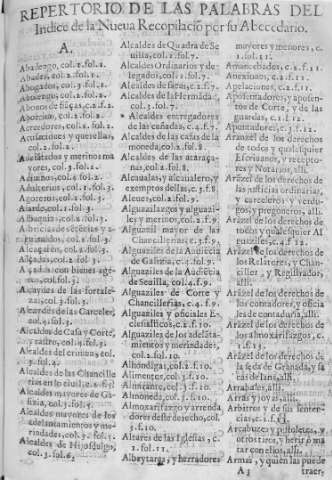 REPERTORIO DE LAS PALABRAS DEL
Indice de la Nueua Recopilaciō por su Abecedario.
A.
Abadengo, col.2.fol.2.
Abades, col.2.fol.2.
Abogados, col.3.fol.2.
Acreedores, col.2.fol.2.
Acusaciones y querellas,
col.2.fol.2.
Adelātados y merinos ma
yores, col.3.fol.2.
Adulterios, col.3.fol.3.
Agoreros, col.2.fol.3.
Alcaldes, col.2.fol.3.
Alcaydes de las fortale-
zas, col.3.fol.3.
Alcaydes de las Carceles,
Alcaldes de Casa y Corte,
y rastro, col.4.fol.3.
Alcaldes del crimen, col.
Alcaldes de las Chancille
Alcaldes mayores de Ga-
lizia, col.3.fol.5.
Alcaldes mayores de los
adelantamientos y me-
rindades, col.2.fol.
Alcaldes de Hijosdalgo,
col.3.fol.6.
Alcaldes de Quadra de Se
uilla, col.2.fol.7.
Alcaldes Ordinarios y de-
legados, col.2.fol.7.
Alcaldes de sacas, c.2.f.7.
Alcaldes de la Hermādad,
col.3.fol.7.
Alcaldes entregadores
de las cañadas, c.4.f.7.
Alcaldes de las casas de la
moneda, col.2.fol.8.
Alcaldes de las ataraça-
nas, col.2.fol.8.
Alcaualas, y alcaualero, y
exemptos dellas, c.3.f.8.
Aleues, col.2.fol.9.
Alguazilazgos y alguazi-
les y merinos, col.2.f.9.
Alguazil mayor de las
Chancillerias, c.3.f.9.
Alguaziles de la Audiēcia
de Galizia, col.4.fol.9.
Alguaziles de la Audiēcia
de Seuilla, col.4.f.9.
Alguaziles de Corte y
Chancillerias, c.4.f.9.
Alguaziles y oficiales E-
clesiasticos, c.2.f.10.
Alguaziles de los adelāta-
mientos o merindades,
col.2.fol.10.
Alhondigas, col.2.f.10.
Alimentos, col.2.f.10.
Almirante, col.3.f.10.
Almoneda, col.3.f.10.
Almoxarifazgo y arrenda
dores deste derecho, col.
3.f.10.
Altares de las Iglesias, c.
1.fol.11.
Albeytares, y herradores
mayores y menores, c.
1.fol.11.
Amancebados, c.2.f.11.
Apelaciones, c.2.f.12.
Aposentadores, y aposen-
tos de Corte, y de las
guardas, c.2.f.12.
Apuntadores, c.3.f.12.
Aranzel de los derechos
de todos y qualesquier
Escriuanos, y recepto-
res y Notarios, alli.
Arāzel de los derechos de
las justicias ordinarias,
y carceleros y verdu-
gos, y pregoneros, alli.
Arāzel de los derechos de
todos y qualesquier Al
guaziles, c.4.f.12.
Arāzel de los derechos de
los Relatores, y Chan-
ciller, y Registrador,
alli.
Arāzel de los derechos de
los contadores, y oficia
les de contaduria, alli.
Arāzel de los derechos de
los almoxarifazgos, c.
Arāzel de los derechos de
la seda de Granada, y sa
cas de lana, alli.
Arrabales, alli.
Arras y joyas, alli.
Arbitros y de sus senten-
cias, c.2.f.13.
Arcabuzes y pistoletes, y
otros tiros, y herir o ma
tar con ellos, alli.
Armas, y quien las puede
A 3
traer,